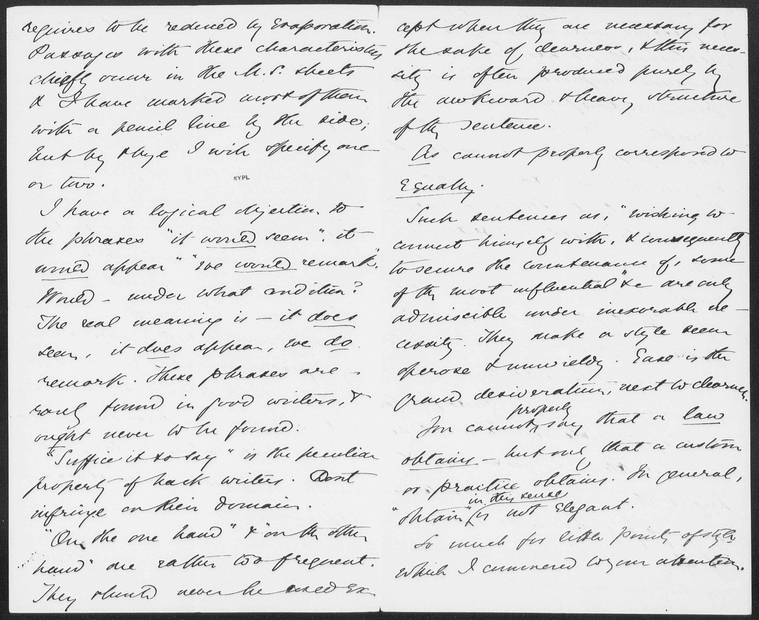 requires to be reduced by evaporation.
Passages with these characteristics
chiefly occur in the M.S. sheets
& I have marked most of them
with a pencil line by the side;
but by & bye I will specify one
or two.
NYPL
I have a logical objection to
the phrases "it would seem", "it
would appear" "we would remark".
Would – under what condition?
The real meaning is – it does
seem, it does appear, we do
remark. These phrases are
rarely found in good writers, &
ought never to be found.
"Suffice it to say" is the peculiar
property of hack writers. Dont
infringe on their domain.
"On the one hand" & "on the other
hand" are rather too frequent.
They should never be used ex
cept when they are necessary for
the sake of clearness, & this neces-
sity is often produced purely by
the awkward & heavy structure
of the sentence.
As cannot properly correspond to
Equally.
Such sentences as, "wishing to
connect himself with, & consequently
to secure the countenance of, some
of the most influential" &c are only
admissible under inexorable ne-
cessity. They make a style seem
operose & unwieldy. Ease is the
grand desideratum, next to clearness.
You cannot properly say that a law
obtains – but only that a custom
or practice obtains. In general,
"obtain" in this sense is not elegant.
So much for little points of style
which I commend to your attention.